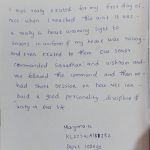 I was really excited for my first day of
NCC when I reached the unit it was
a really a heart warming sight to
seniors in uniform my heart was racing
and even excited to them our senior
commanded Savadhan and vishram and
we followed the command and then we
had short session on how NCC can
build a good personality, discipline &
unity in our life
Govt college